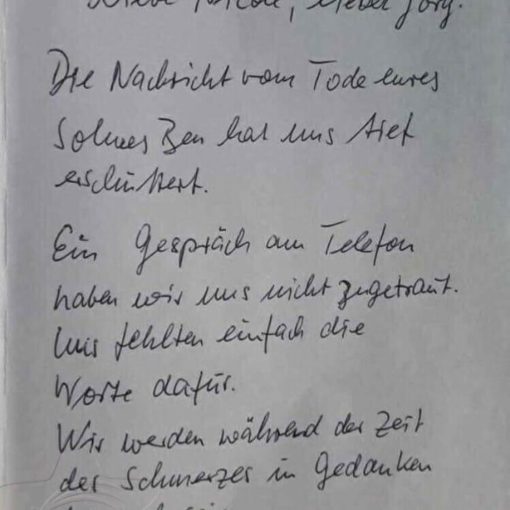 Liebe Nicole, lieber Jörg.
Die Nachricht vom Tode eures
Sohnes Ben hat uns tief
erschüttert.
Ein Gespräch am Telefon
haben wir uns nicht zugetraut.
Uns fehlten einfach die
Worte dafür.
Wir werden während der Zeit
des Schmerzes in Gedanken